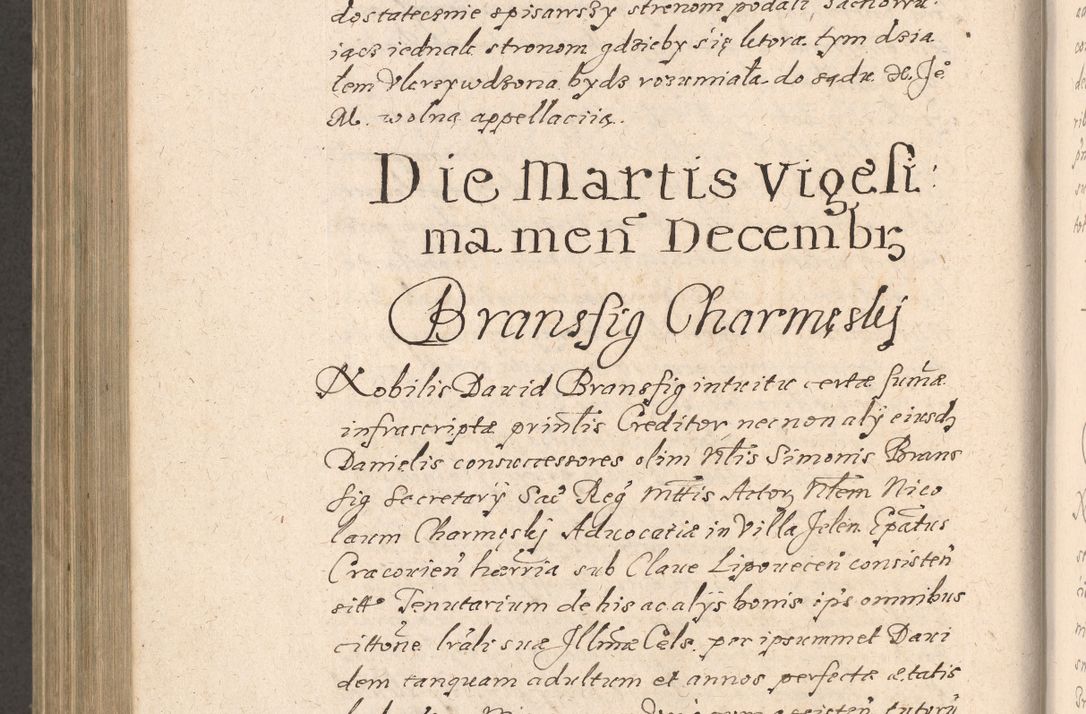 dostatecznie spisawszy stronom podali, zachowu:
iącz iednak stronom gdzieby się ktora tym dzia
łem Vkrzywdzona bydz rozumiała do sądu X. Je°
M. wolną appellaciią.
Die Martis Vigesi:
ma men̄ Decembr̃
Bransfig Charmęskj
Nobilis Dauid Bransfig intuitu certæ sum̃æ
infrascriptæ prin̄lis Creditor, necnon alÿ eiusd̃
Danielis consuccessores olim N̄lis Simonis Brans
fig Secretarÿ Sac̃ Reg̃ Mttis Actor, N̄lem Nico
laum Charmęskj Aduocatiæ in Villa Jelen Ep̄atus
Cracouien̄ hæƌria sub Claue Lipouecen̄ consisten̄
sitt° Tenutarium de his ac alÿs bonis ip̄s omnibus
citton̄e lr̄ali suæ Jllmæ Cels. per ipsummet Daui
dem tanquam adultum et annos perfectæ ætatis